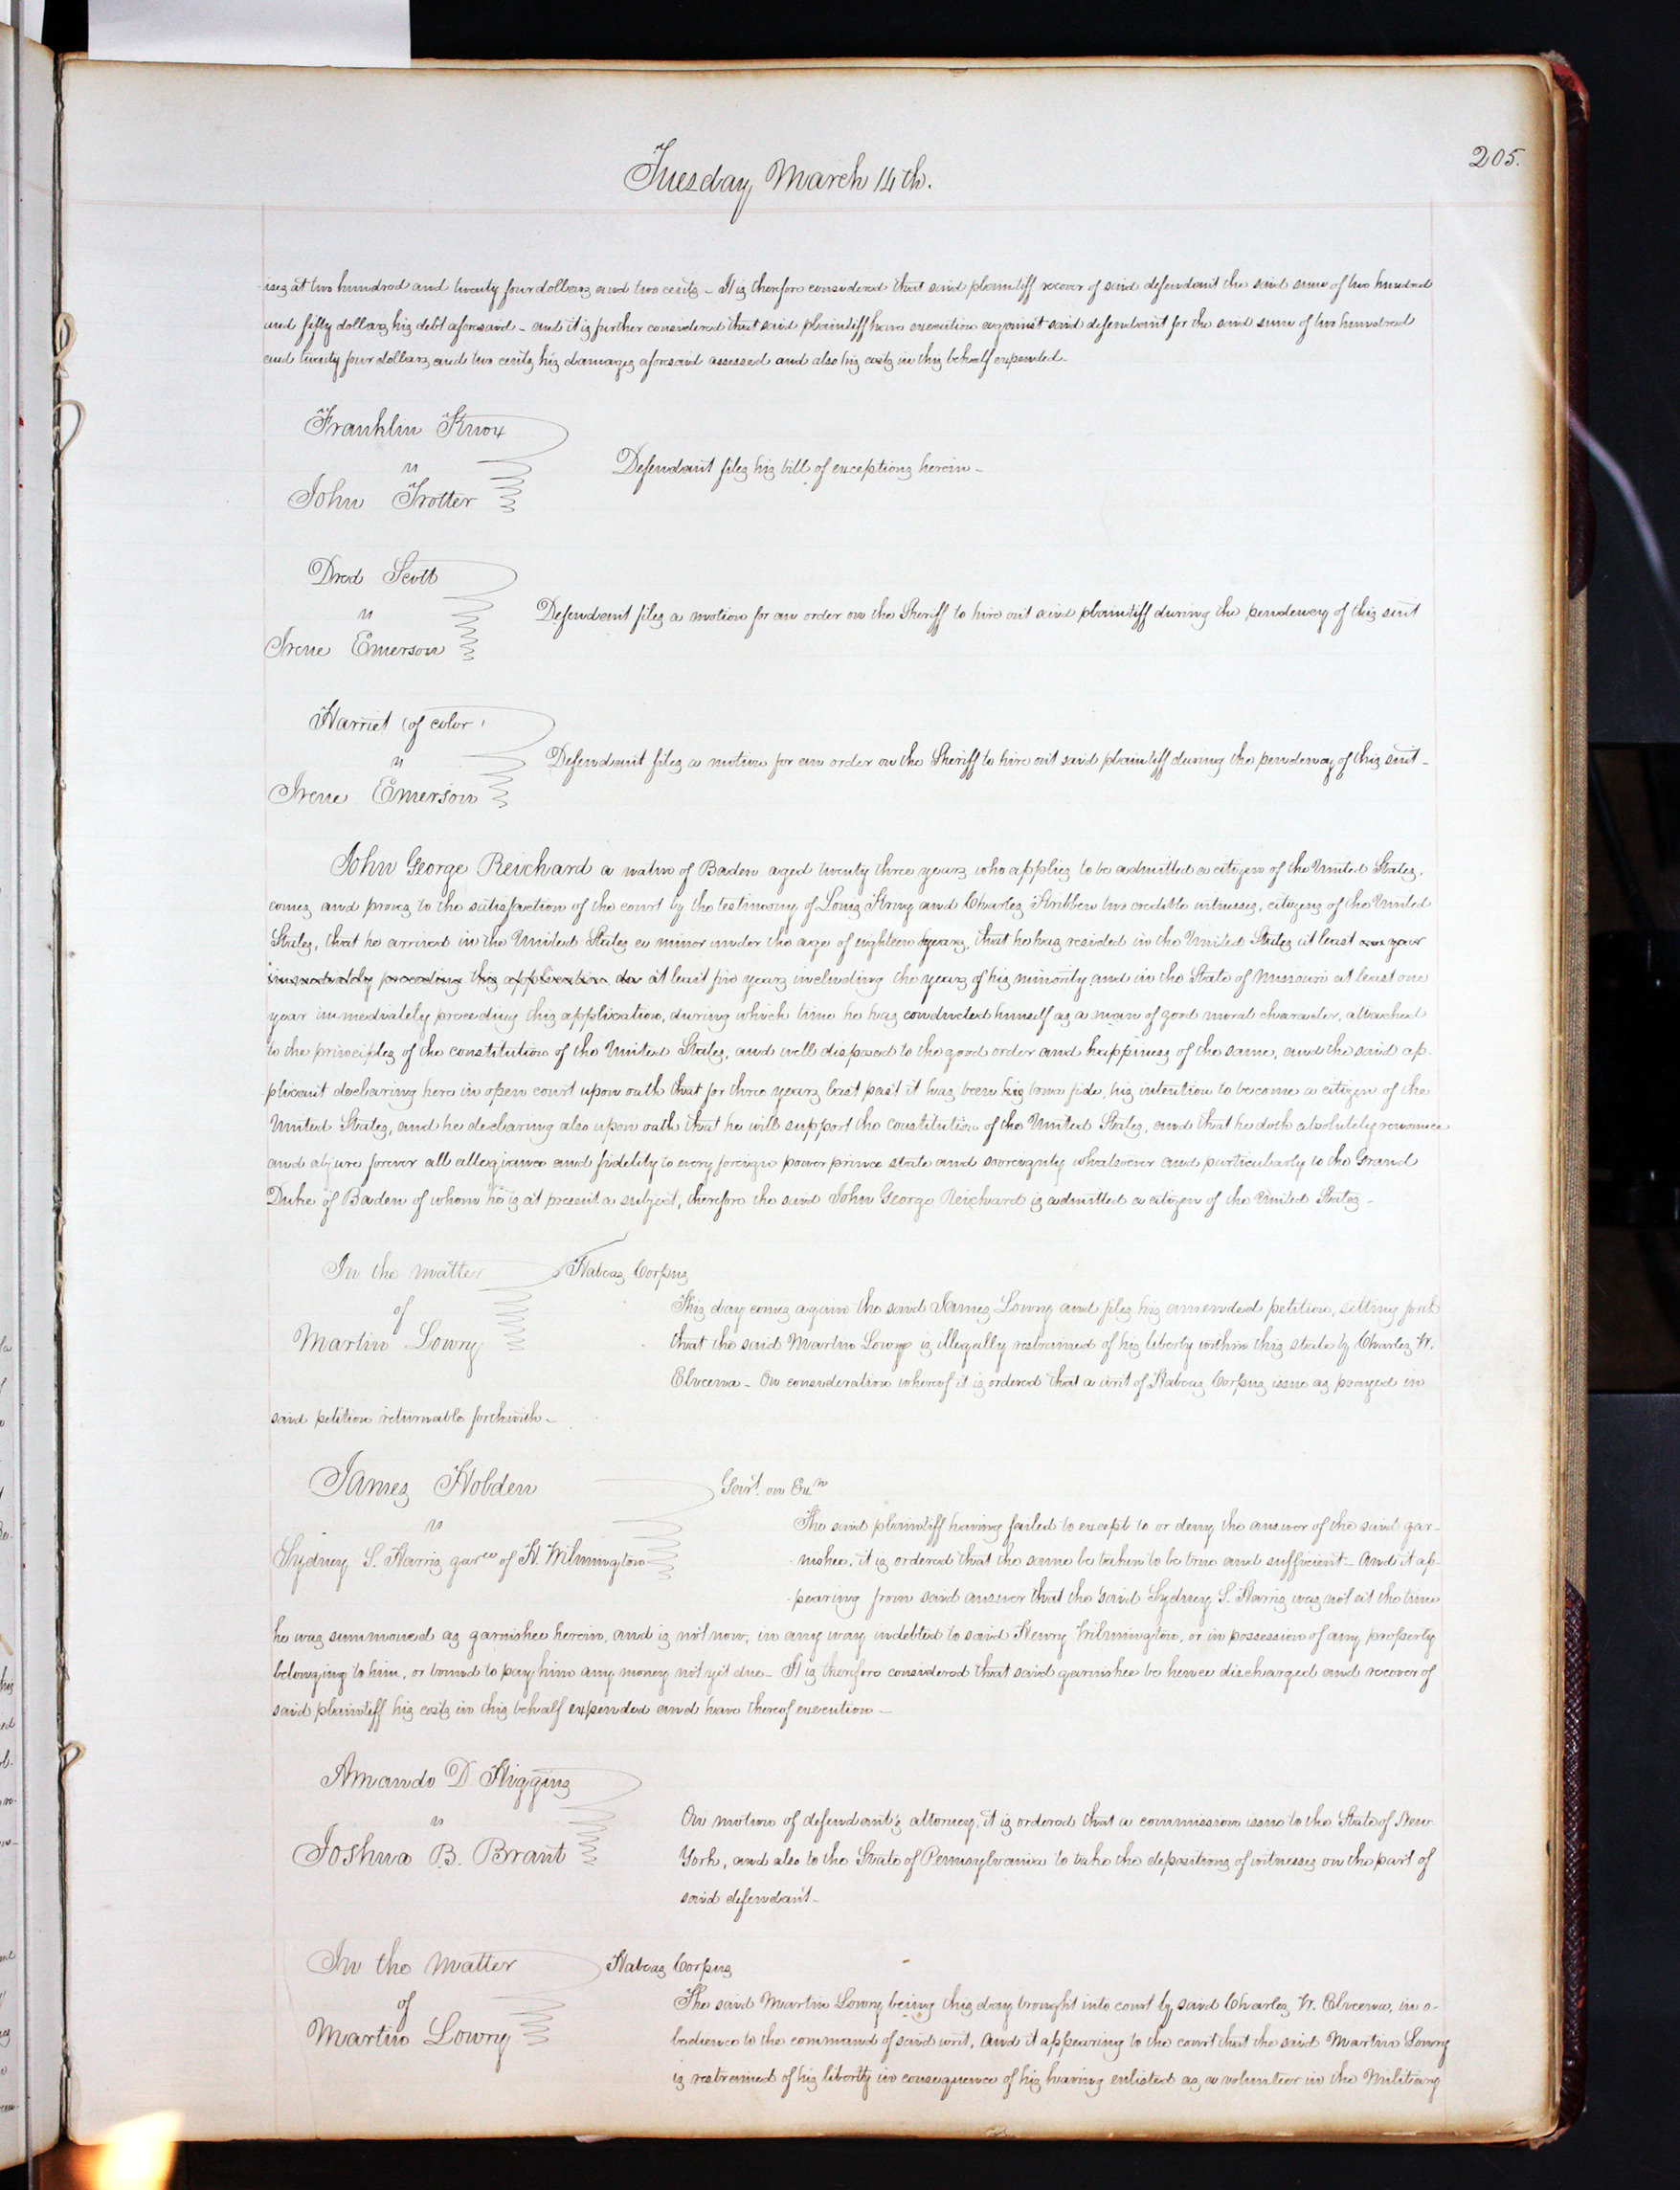 205.
Tuesday March 14th.
ises at two hundred and twenty four dollars and two cents - It is therefore considered that said plaintiff recover of said defendant the said sum of two hundred
and fifty dollars his debt aforesaid - and it is further considered that said plaintiff have execution against said defendant for the said sum of two hundred
and twenty four dollars and two cents his damages aforesaid assessed and also his costs in this behalf expended -
Franklin Knox
vs
John Trotter
Defendant files his bill of exceptions herein -
Dred Scott
vs
Irene Emerson
Defendant files a motion for an order on the Sheriff to hire out said plaintiff during the pendency of this suit
Harriet (of color)
vs
Irene Emerson
Defendant files a motion for an order on the Sheriff to hire out said plaintiff during the pendency of this suit -
John George Reichard a native of Baden aged twenty three years who applies to be admitted a citizen of the United States,
comes and proves to the satisfaction of the court by the testimony of Louis and Charles two credible witnesses, citizens of the United
States, that he arrived in the United States a minor under the age of eighteen years, that he has resided in the United States at least one year
immediately preceding this application at least five years including the years of his minority and in the State of Missouri at least one
year immediately preceding this application, during which time he has conducted himself as a man of good moral character, attached
to the principles of the constitution of the United States, and well disposed to the good order and happiness of the same, and the said ap-
plicant declaring here in open court upon oath that for three years last past it has been his bona fide, his intention to become a citizen of the
United States, and he declaring also upon oath that he will support the constitution of the United States, and that he doth absolutely renounce
and abjure forever all allegiance and fidelity to every foreign power prince state and sovereignty whatsoever and particularly to the Grand
Duke of Baden of whom he is at present a subject, therefore the said John George Reichard is admitted a citizen of the United States -
In the matter
of
Martin Lowry
Habeas Corpus
This day comes again the said James Lowry and files his amended petition, setting forth
that the said Martin Lowry is illegally restrained of his liberty within this state by Charles W.
On consideration whereof it is ordered that a writ of Habeas Corpus issue as prayed in
said petition returnable forthwith -
James Holden
vs
Sydney S. Harris garee of H. Wilmington
Gart. on Exn
The said plaintiff having failed to except to or deny the answer of the said gar-
nishee, it is ordered that the same be taken to be true and sufficient - And it ap-
pearing from said answer that the said Sydney S. Harris was not at the time
he was summoned as garnishee herein, and is not now, in any way indebted to said Henry Wilmington, or in possession of any property
belonging to him, or bound to pay him any money not yet due - It is therefore considered that said garnishee be hence discharged and recover of
said plaintiff his costs in this behalf expended and have thereof execution -
Amando D. Higgins
vs
Joshua B. Brant
On motion of defendant's attorney, it is ordered that a commission issue to the State of New
York, and also to the State of Pennsylvania to take the depositions of witnesses on the part of
said defendant -
In the matter
of
Martin Lowry
Habeas Corpus
The said Martin Lowry being this day brought into court by said Charles W. in o-
bedience to the command of said writ, and it appearing to the court that the said Martin Lowry
is restrained of his liberty in consequence of his having enlisted as a volunteer in the Military